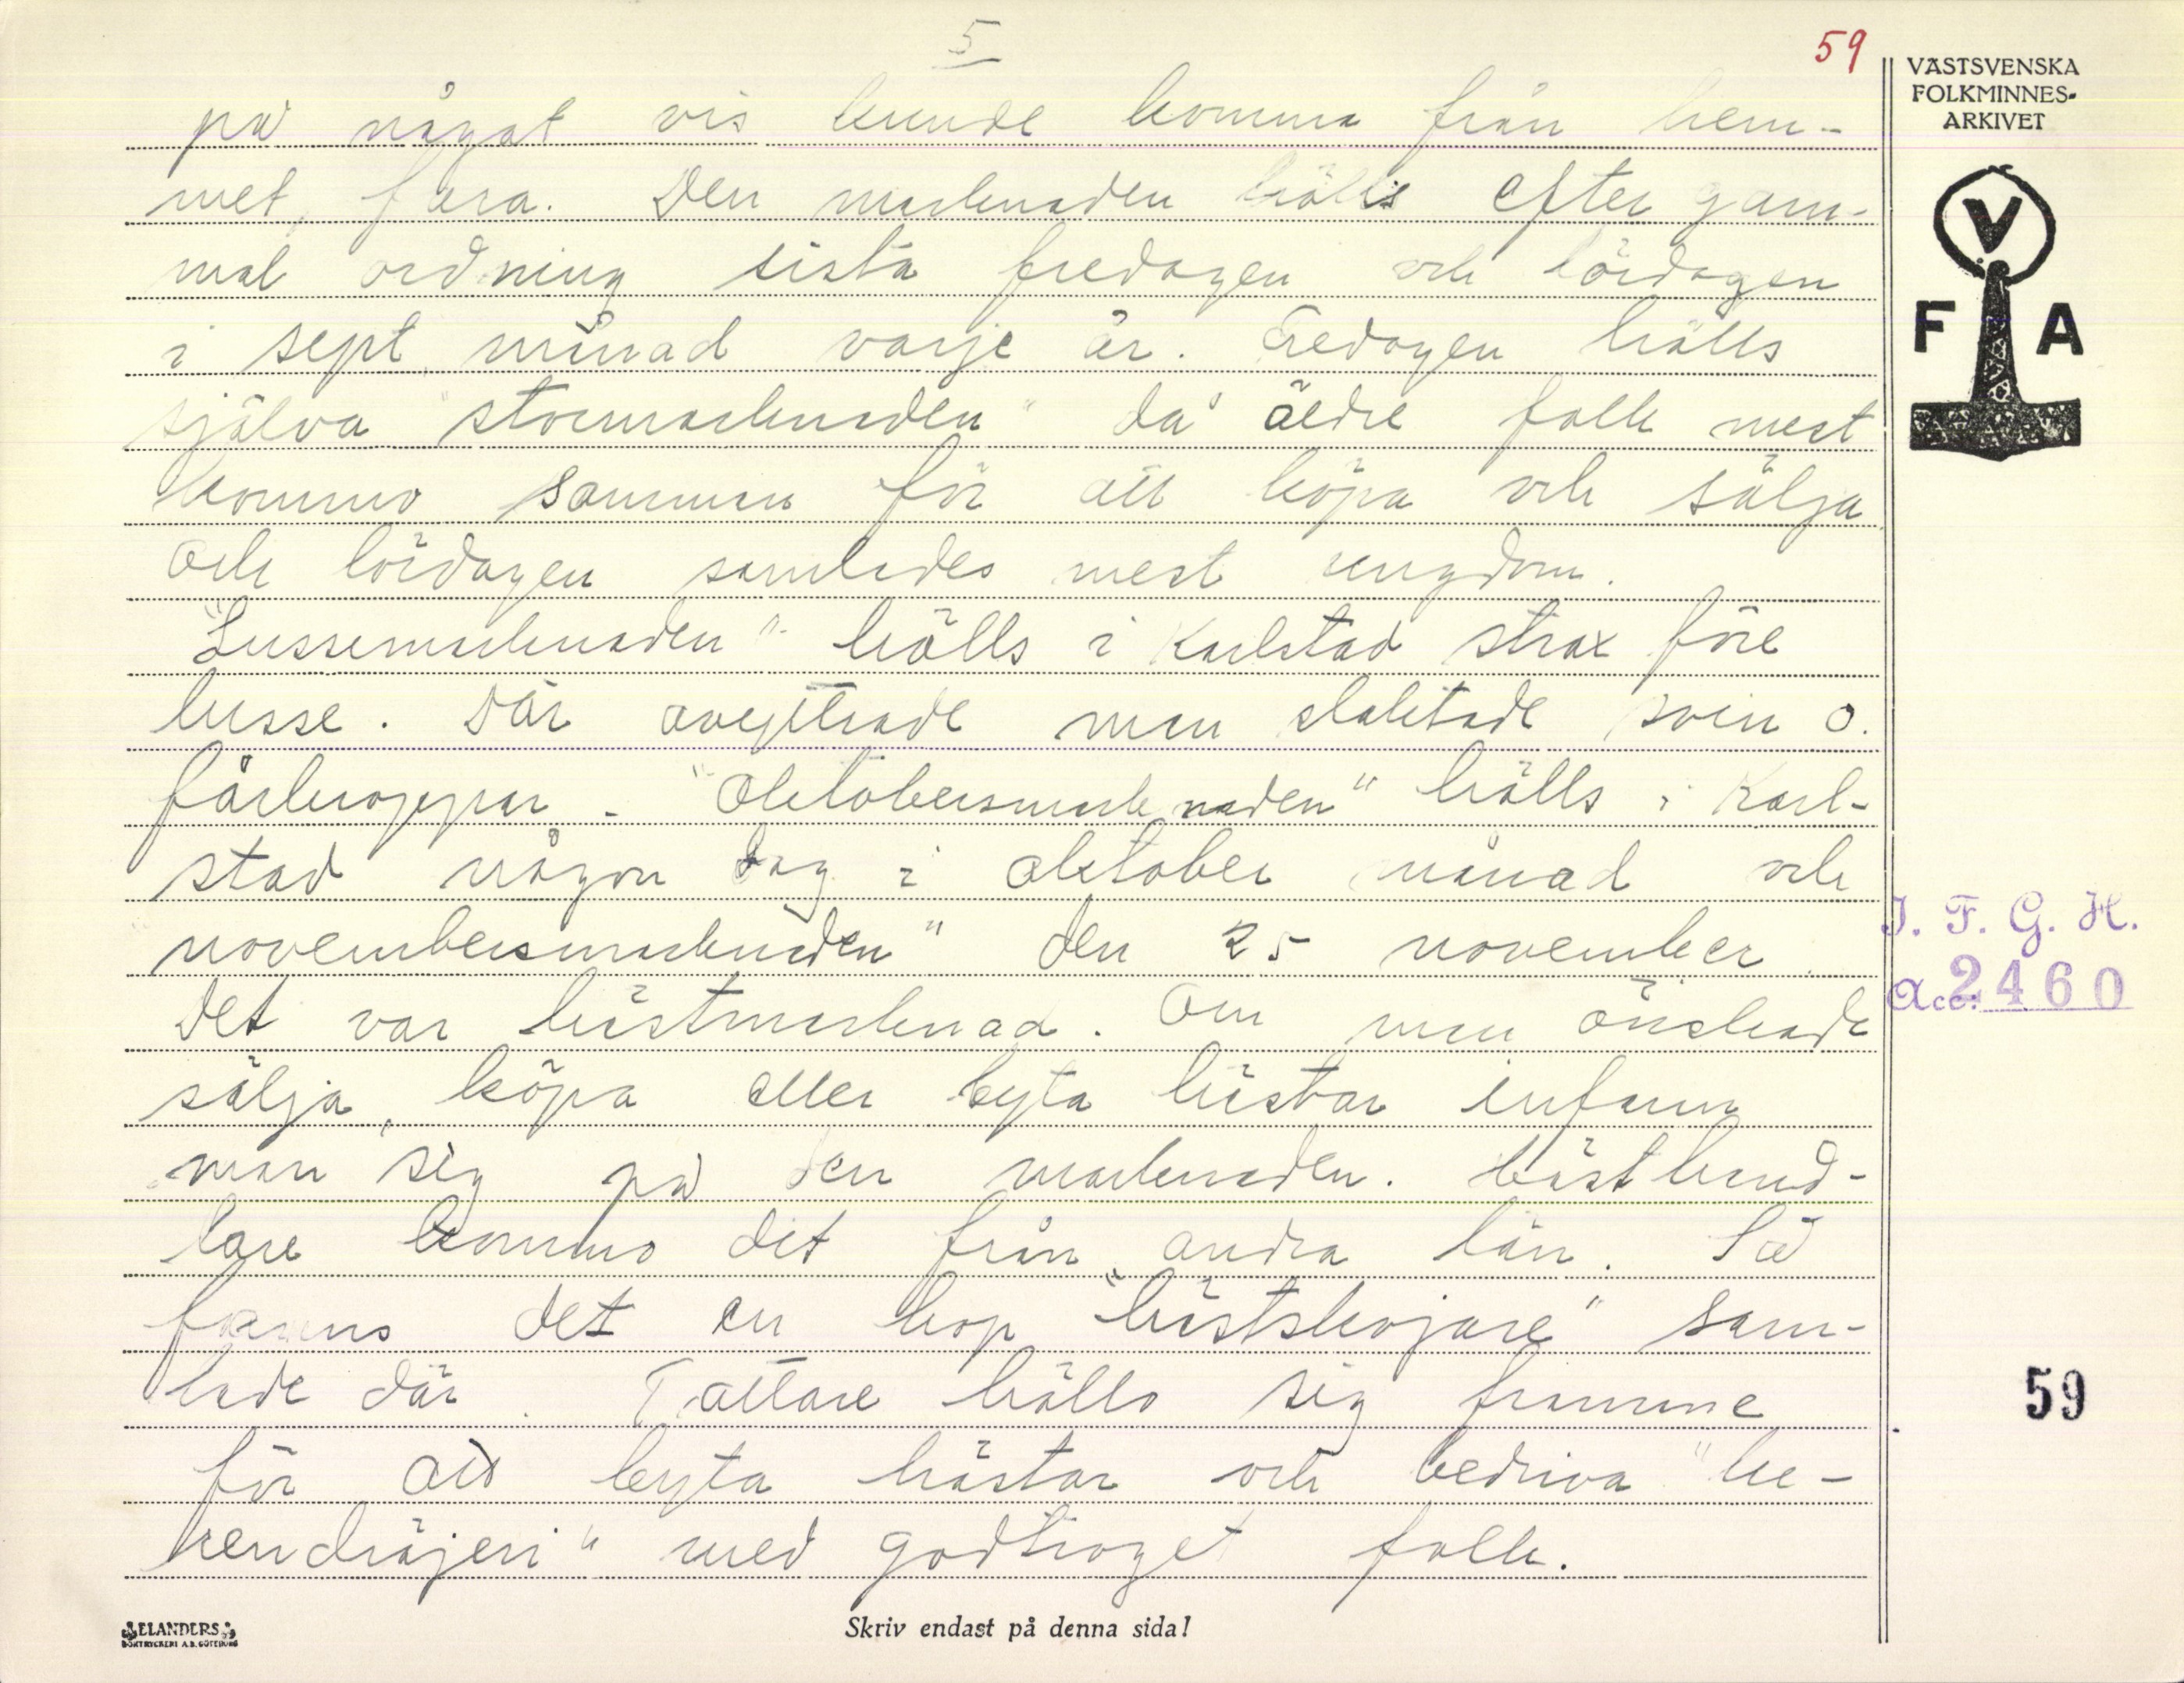 5
59
på något vis kunde komma från hem-
met, fara. Den marknaden hölls efter gam-
mal ordning sista fredagen och lördagen
i sept. månad varje år. Fredagen hölls
själva "stormarknaden" då äldre folk mest
kommo samman för att köpa och sälja
och lördagen samlades mest ungdom.
"Lussemarknaden" hölls i Karlstad strax före
lusse. Där avyttrade man slaktade svin o.
fårkroppar. - "Oktobersmarknaden" hölls i Karl-
stad någon dag i oktober månad och
"novembersmarknaden" den 25 november.
Det var hästmarknad. Om man önskade
sälja, köpa eller byta hästar infann
man sig på den marknaden. Hästhand-
lare kommo dit från andra län. Så
fanns det en hop "hästskojare" sam-
lade där. Tattare höllo sig framme
för att byta hästar och bedriva "be-
rendräjeri" med godtroget folk.
VÄSTSVENSKA
FOLKMINNES-
ARKIVET
V
F A
I. F. G. H.
Acc: 2460
59
ELANDERS
BOKTRYCKERI A.B. GÖTEBORG
Skriv endast på denna sida!